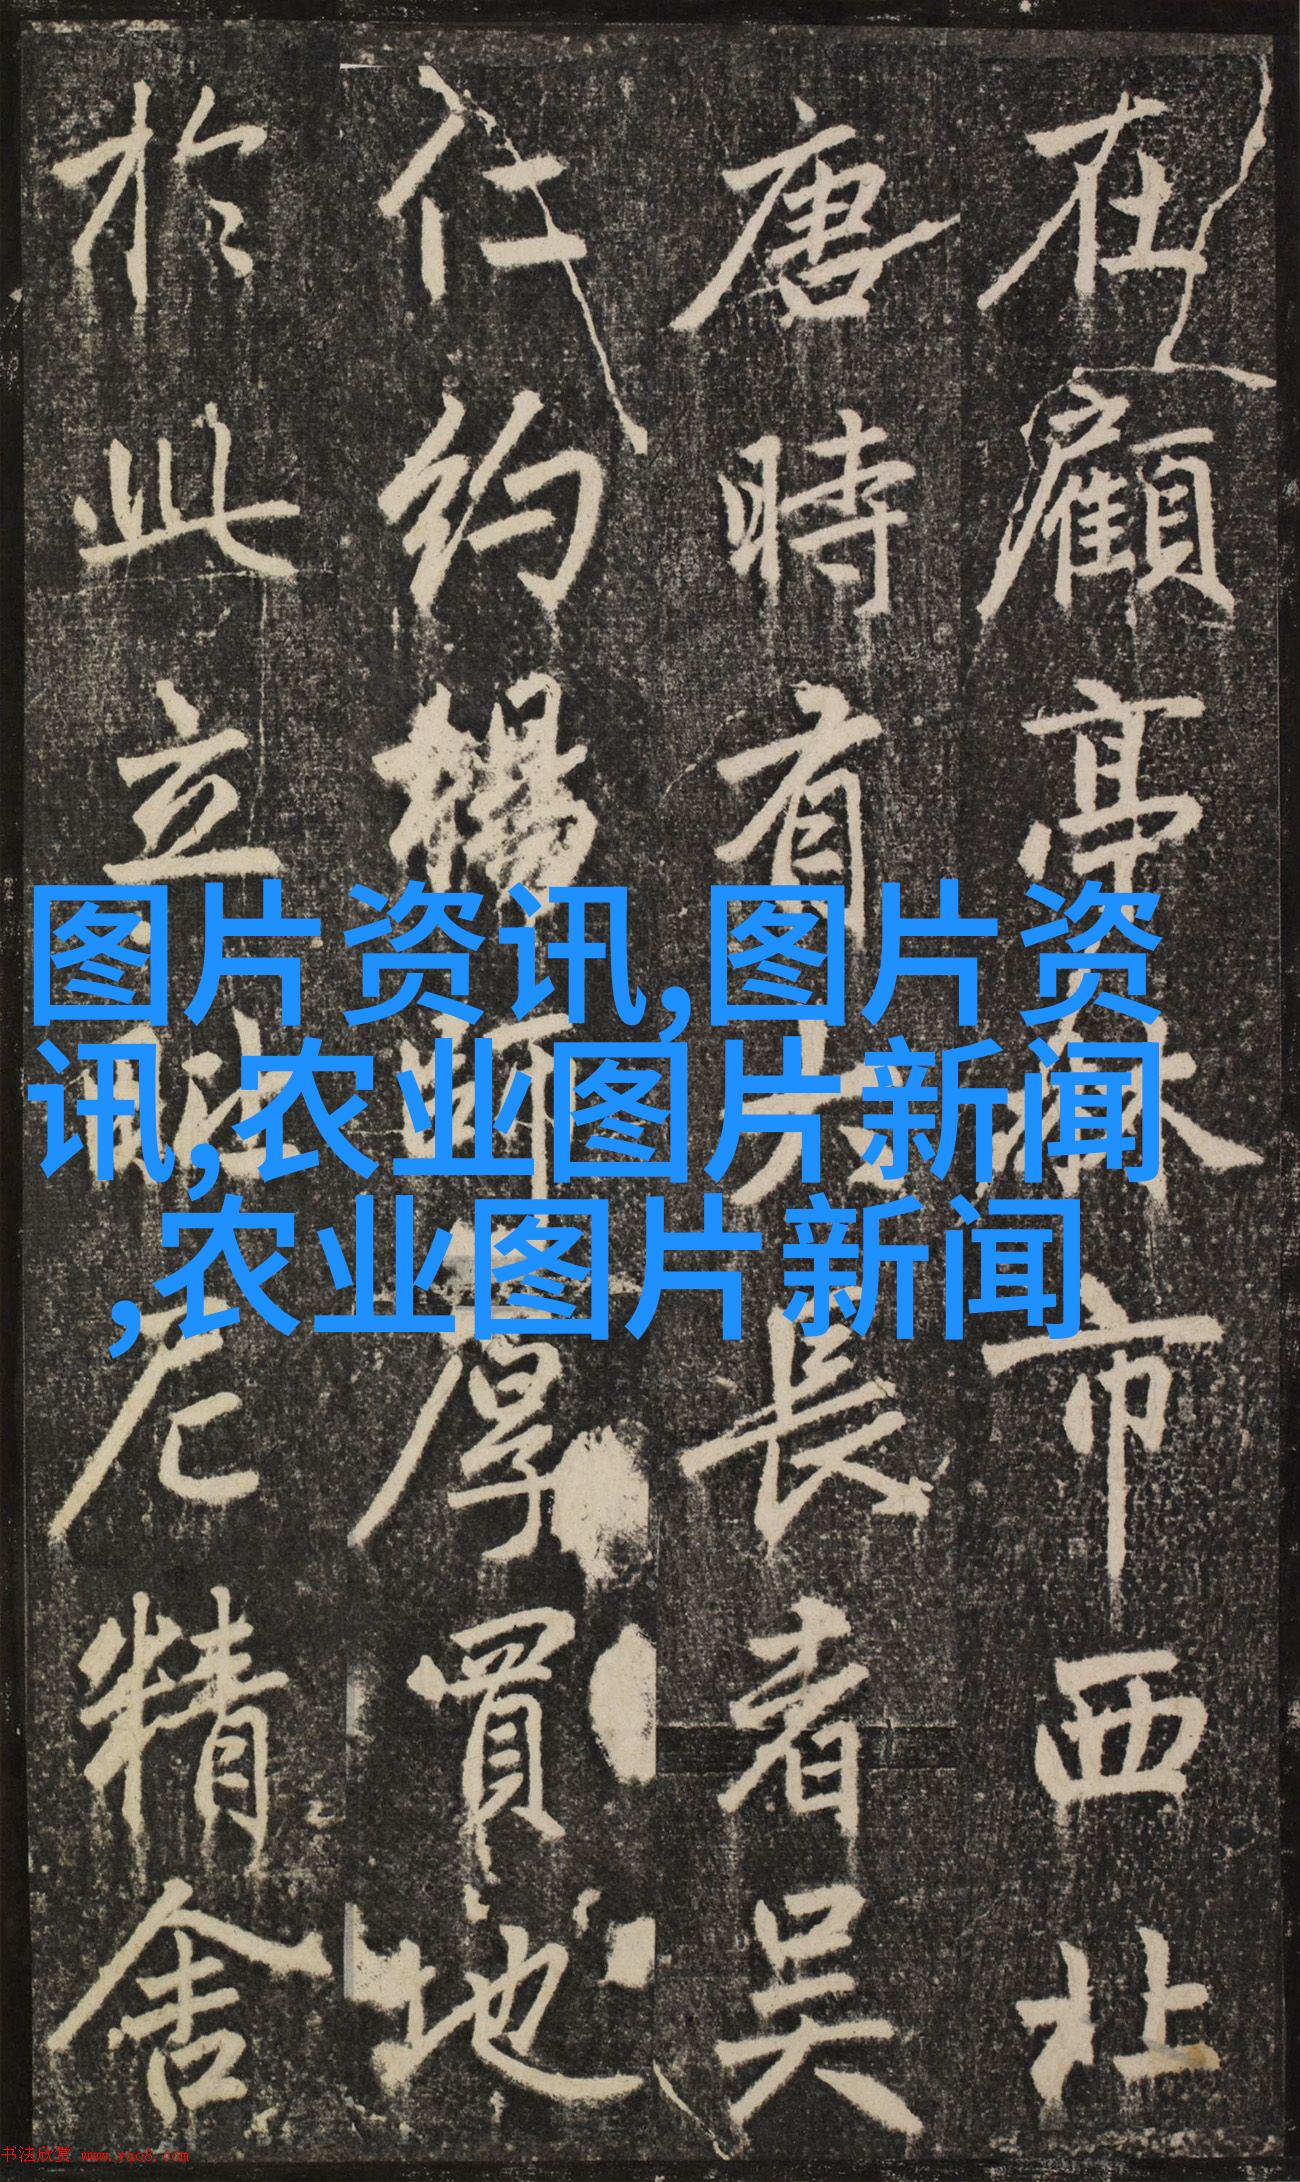 在顧亭林市西北
唐時有大長者吳
仁約楊師厚買地
於此立尼精舍
图片资讯,图片资
讯,农业图片新闻
,农业图片新闻
书法欣赏 www.yac8.com